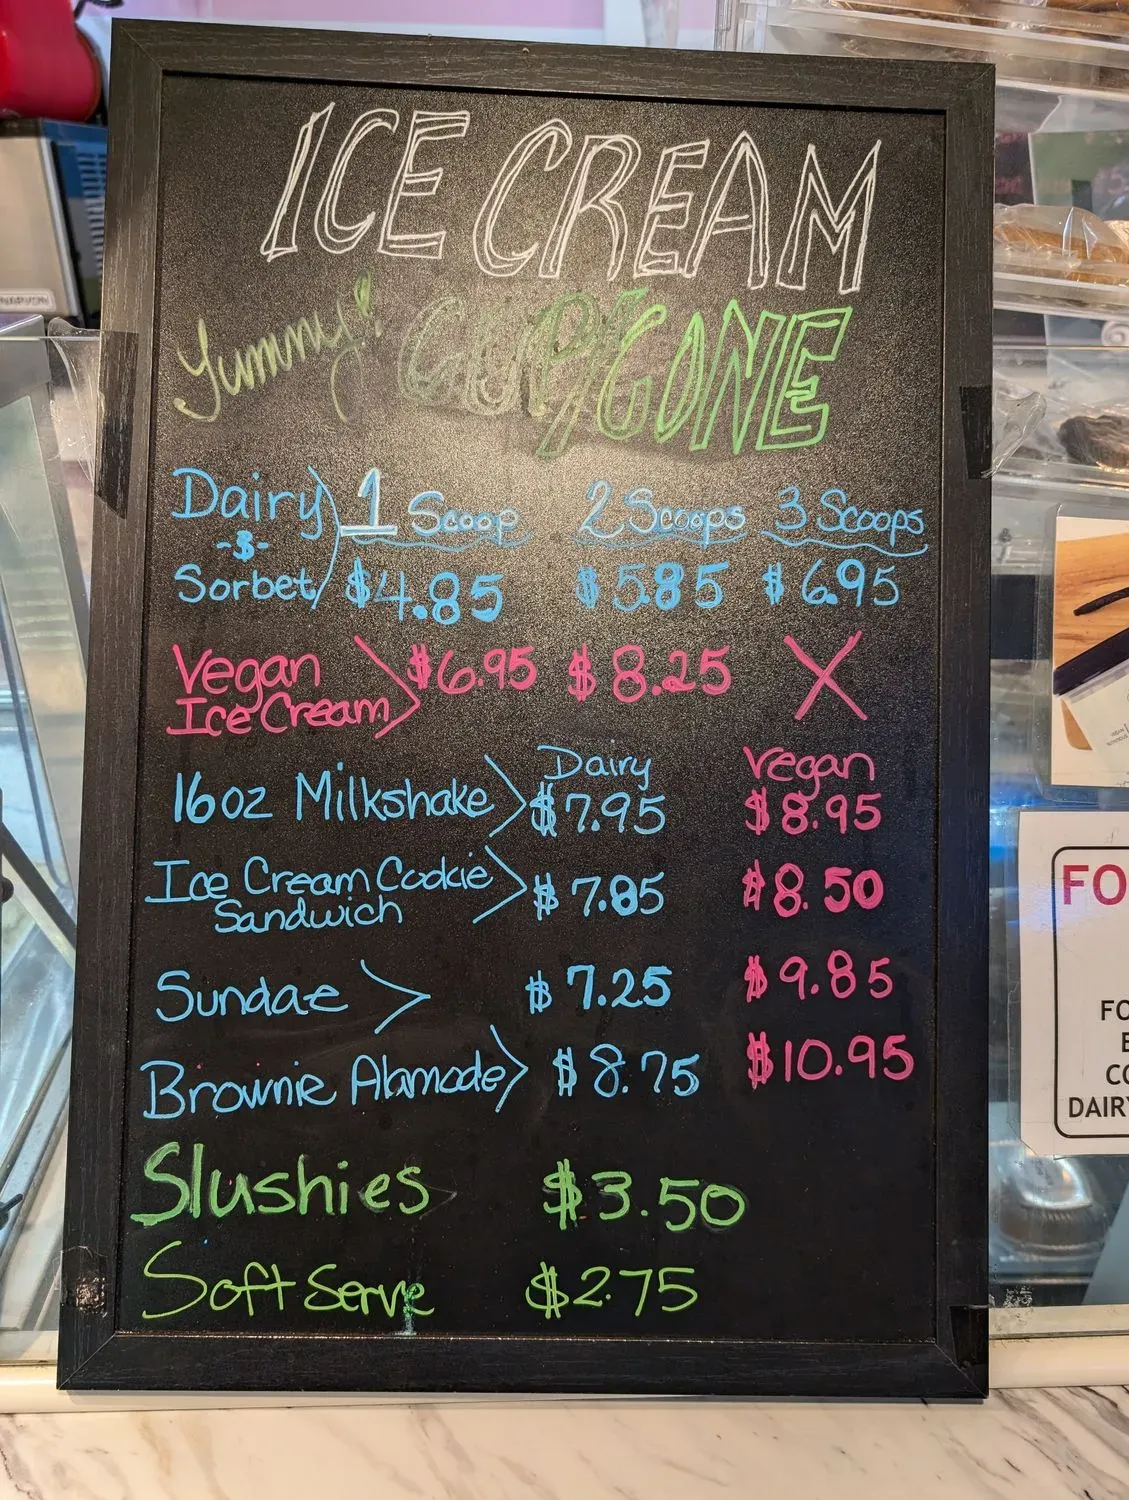 ICE CREAM
Yummy!! CUP/CONE
Dairy 1 Scoop 2 Scoops 3 Scoops
-&-
Sorbet $4.85 $5.85 $6.95
Vegan
Ice Cream $6.95 $8.25 X
Dairy Vegan
16oz Milkshake $7.95 $8.95
Ice Cream Cookie
Sandwich $7.85 $8.50
Sundae $7.25 $9.85
Brownie Alamode $8.75 $10.95
Slushies $3.50
Soft Serve $2.75
FO
FO
E
CO
DAIRY